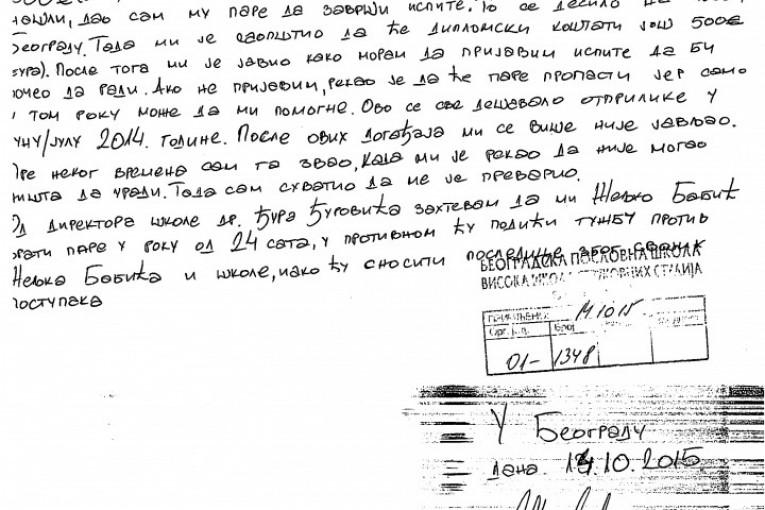 нашли, дао сам му паре да заврши испите. То се десило
Београду. Тада ми је саопштио да ће дипломски коштати још 500€
). После тога ми је јавио како морам да пријавим испите да би
почео да ради. Ако не пријавим, рекао је да ће паре пропасти јер само
у том року може да ми помогне. Ово се све дешавало отприлике у
уну/јулу 2014. године. После ових догађаја ми се више није јављао.
Пре неког времена сам га звао, када ми је рекао да није могао
ништа да уради. Тада сам схватио да ме је преварио.
Од директора школе др. Ђура Ђуровића захтевам да ми Жељко Бабић
врати паре у року од 24 сата, у противном ћу подићи тужбу против
Жељка Бабића и школе, иако ћу сносити последице због својих
поступака
БЕОГРАДСКА ПОСЛОВНА ШКОЛА
ВИСОКА ШКОЛА СТРУКОВНИХ СТУДИЈА
ПРИМЉЕНО: 14.10.15
Орг. ј. Број
01- 1348
У Београду
дана. 14.10.2015.